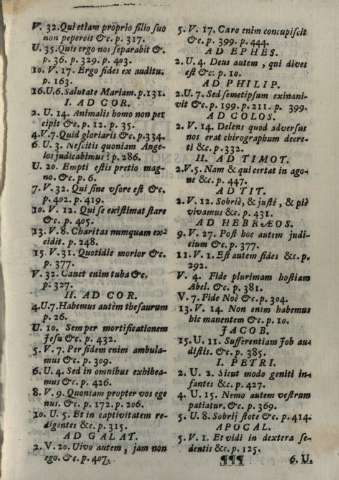 V. 32. Qui etiam proprio filio suo
non pepercit &c. p. 317.
U. 35. Quis ergo nos separabit &.
p. 36. p. 329. p. 403.
10. V. 17. Ergo fides ex auditu.
p. 163.
16. U. 6. Salutate Mariam. p. 131.
I. AD COR.
2. U. 14. Animalis homo non per
cipit &c. p. 12. p. 35.
4. V. 7. Quid gloriaris &c. p. 334.
6. U. 3. Nescitis quoniam Ange-
los judicabimus? p. 286.
U. 20. Empti estis pretio mag-
no. &c. p. 6.
7. V. 32. Qui sine uxore est &c.
p. 402. p. 419.
10. V. 12. Qui se existimat stare
&c. p. 405.
13. V. 8. Charitas nunquam ex-
cidit. p. 248.
15. V. 31. Quotidie morior &c.
p. 377.
V. 32. Canet enim tuba &c.
p. 327.
II. AD COR.
4. U. 7. Habemus autem thesaurum
p. 26.
U. 10. Semper mortificationem
Jesu &c. p. 432.
5. V. 7. Per fidem enim ambula-
mus &c. p. 309.
6. U. 4. Sed in omnibus exhibea-
mus &c. p. 426.
8. V. 9. Quoniam propter vos ege
nus. &c. p. 172. p. 206.
10. U. 5. Et in captivitatem re-
digentes &c. p. 315.
AD GALAT.
2. V. 20. Uivo autem, jam non
ego. &c. p. 407.
5. V. 17. Caro enim concupiscit
&c. p. 399. p. 444.
AD EPHES.
2. U. 4. Deus autem, qui dives
est &c. p. 10.
AD PHILIP.
2. U. 7. Sed semetipsum exinani-
vit &c. p. 199. p. 211. p. 399.
AD COLOS.
2. V. 14. Delens quod adversus
nos erat chirographum decre-
ti &c. p. 332.
II. AD TIMOT.
2. V. 5. Nam & qui certat in ago-
ne &c. p. 447.
AD TIT.
2. V. 12. Sobriè, & justè, & piè
vivamus &c. p. 431.
AD HEBRÆOS.
9. V. 27. Post hoc autem judi-
cium &c. p. 377.
11. V. 1. Est autem fides &c. p.
292.
V. 4. Fide plurimam hostiam
Abel. &c. p. 381.
V. 7. Fide Noë &c. p. 304.
13. V. 14. Non enim habemus
hic manentem &c. p. 10.
JACOB.
15. U. 11. Sufferentiam Job au-
distis. &c. p. 385.
I. PETRI.
2. U. 2. Sicut modo geniti in-
fantes &c. p. 427.
4. U. 15. Nemo autem vestrum
patiatur. &c. p. 369.
5. U. 8. Sobrij stote &c. p. 414.
APOCAL.
5. V. 1. Et vidi in dextera se-
dentis &c. p. 125.
¶¶¶ 6. U.